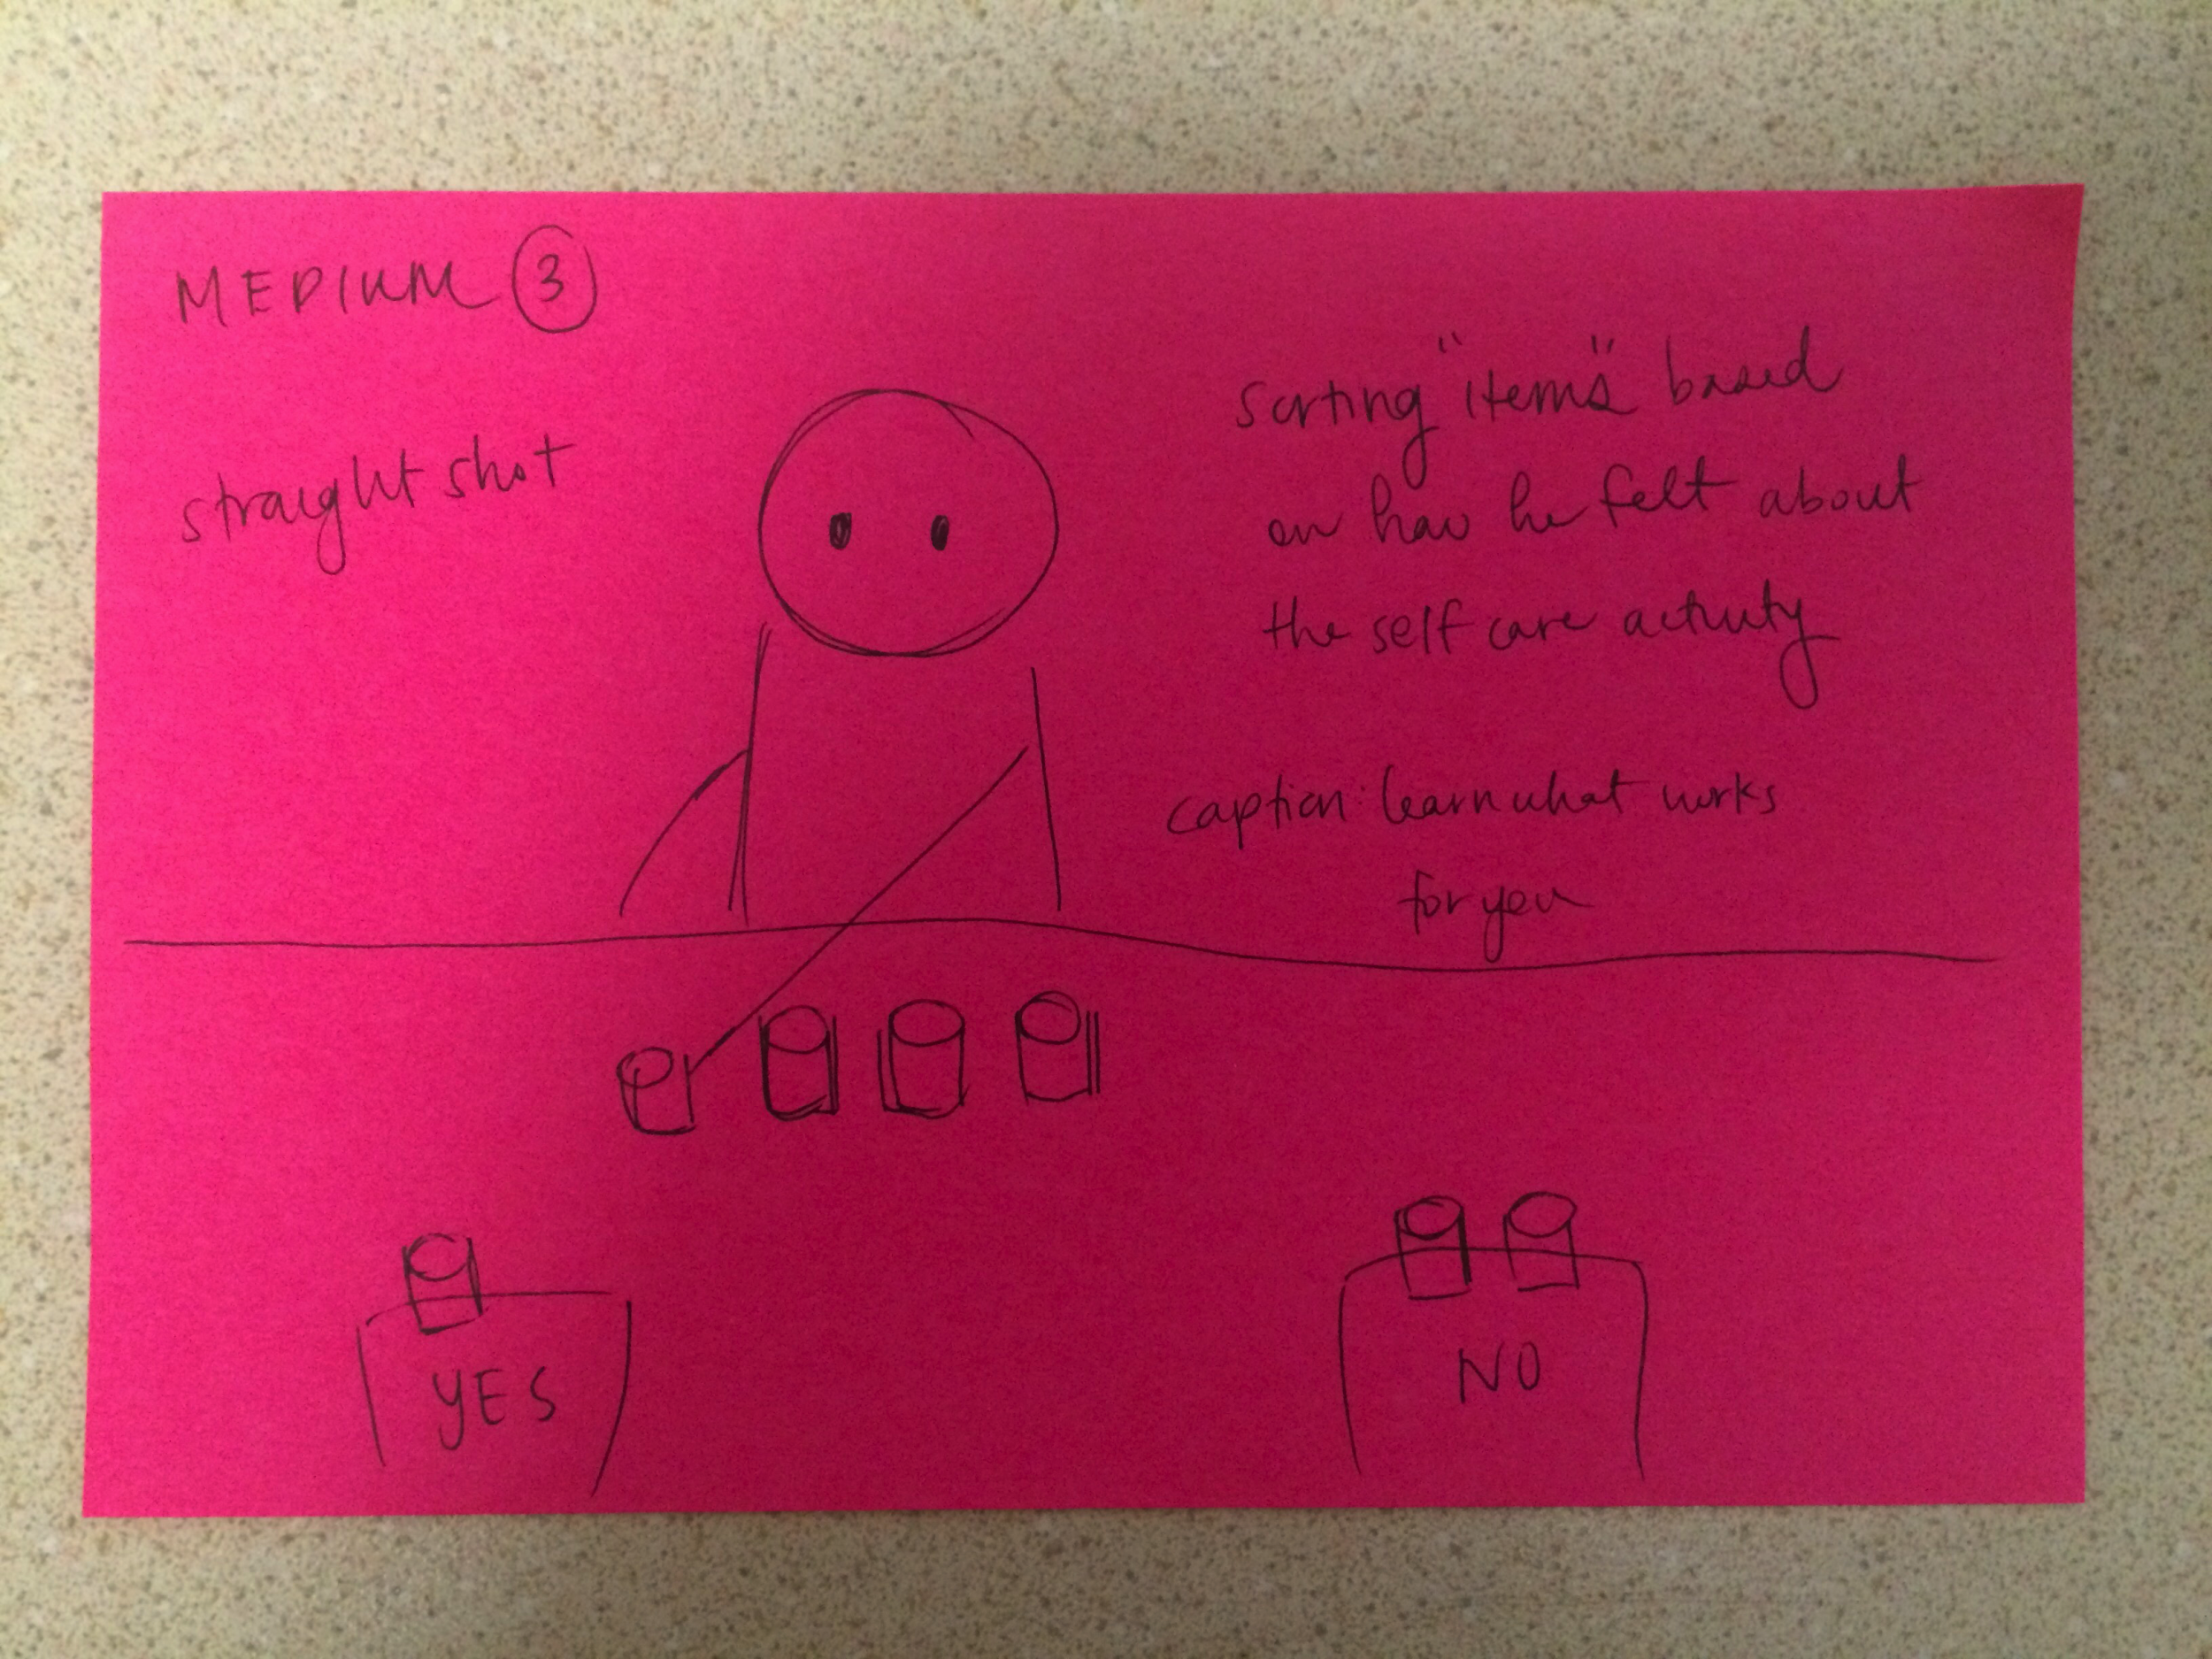 MEDIUM 3
straight shot
Sorting "items" based
on how he felt about
the self care activity
caption: learn what works
for you
YES
NO